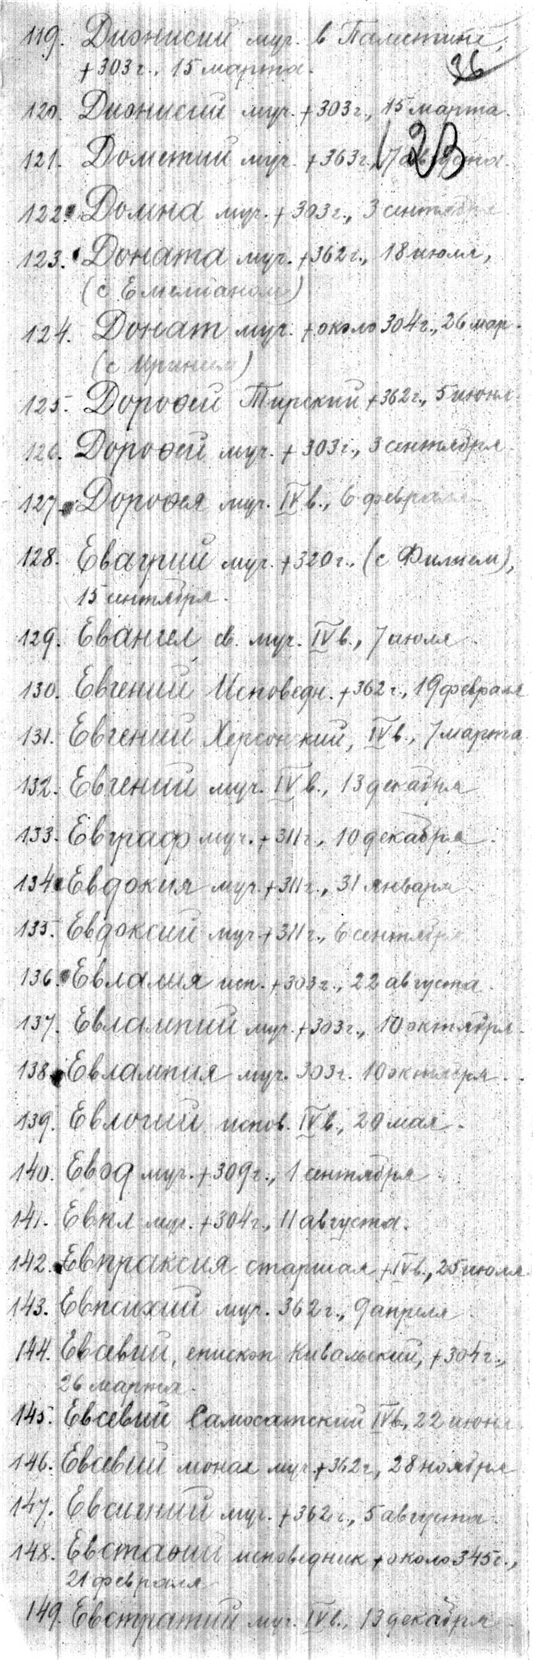 119. Дионисий муч. в Палестине,
+303г., 15 марта.
36
120. Дионисий муч. +303г., 15 марта.
123
121. Дометий муч. +363г., 7 августа.
122. Домна муч. +303г., 3 сентября
123. Доната муч. +362г., 18 июля,
(с Емелианом)
124. Донат муч. +около 304г., 26 мар.
(с Иринеем)
125. Дорофей Тирский +362г., 5 июня.
126. Дорофей муч. +303г., 3 сентября.
127. Дорофея муч. IV в., 6 февраля
128. Евагрий муч. +320г. (с Филием),
15 сентября.
129. Евангел, св. муч. IV в., 7 июля.
130. Евгений Исповедн. +362г., 19 февраля
131. Евгений Херсонский, IV в., 7 марта.
132. Евгений муч. IV в., 13 декабря
133. Евграф муч. +311г., 10 декабря.
134. Евдокия муч. +311г., 31 января
135. Евдоксий муч +311г., 6 сентября
136. Евлалия исп. +303г., 22 августа.
137. Евлампий муч. +303г., 10 октября.
138. Евлампия муч. 303г. 10 октября.
139. Евлогий испов. IV в., 20 мая.
140. Евод муч. +309г., 1 сентября
141. Евпл муч. +304г., 11 августа.
142. Евпраксия старшая +IV в., 25 июля
143. Евпсихий муч. 362г., 9 апреля
144. Евсевий, епископ Кивальский, +304г.,
26 марта.
145. Евсевий Самосатский IV в., 22 июня
146. Евсевий монах муч. +362г., 28 ноября
147. Евсигний муч. +362г., 5 августа.
148. Евстафий исповедник +около 345г.,
21 февраля
149. Евстратий муч. IV в., 13 декабря.